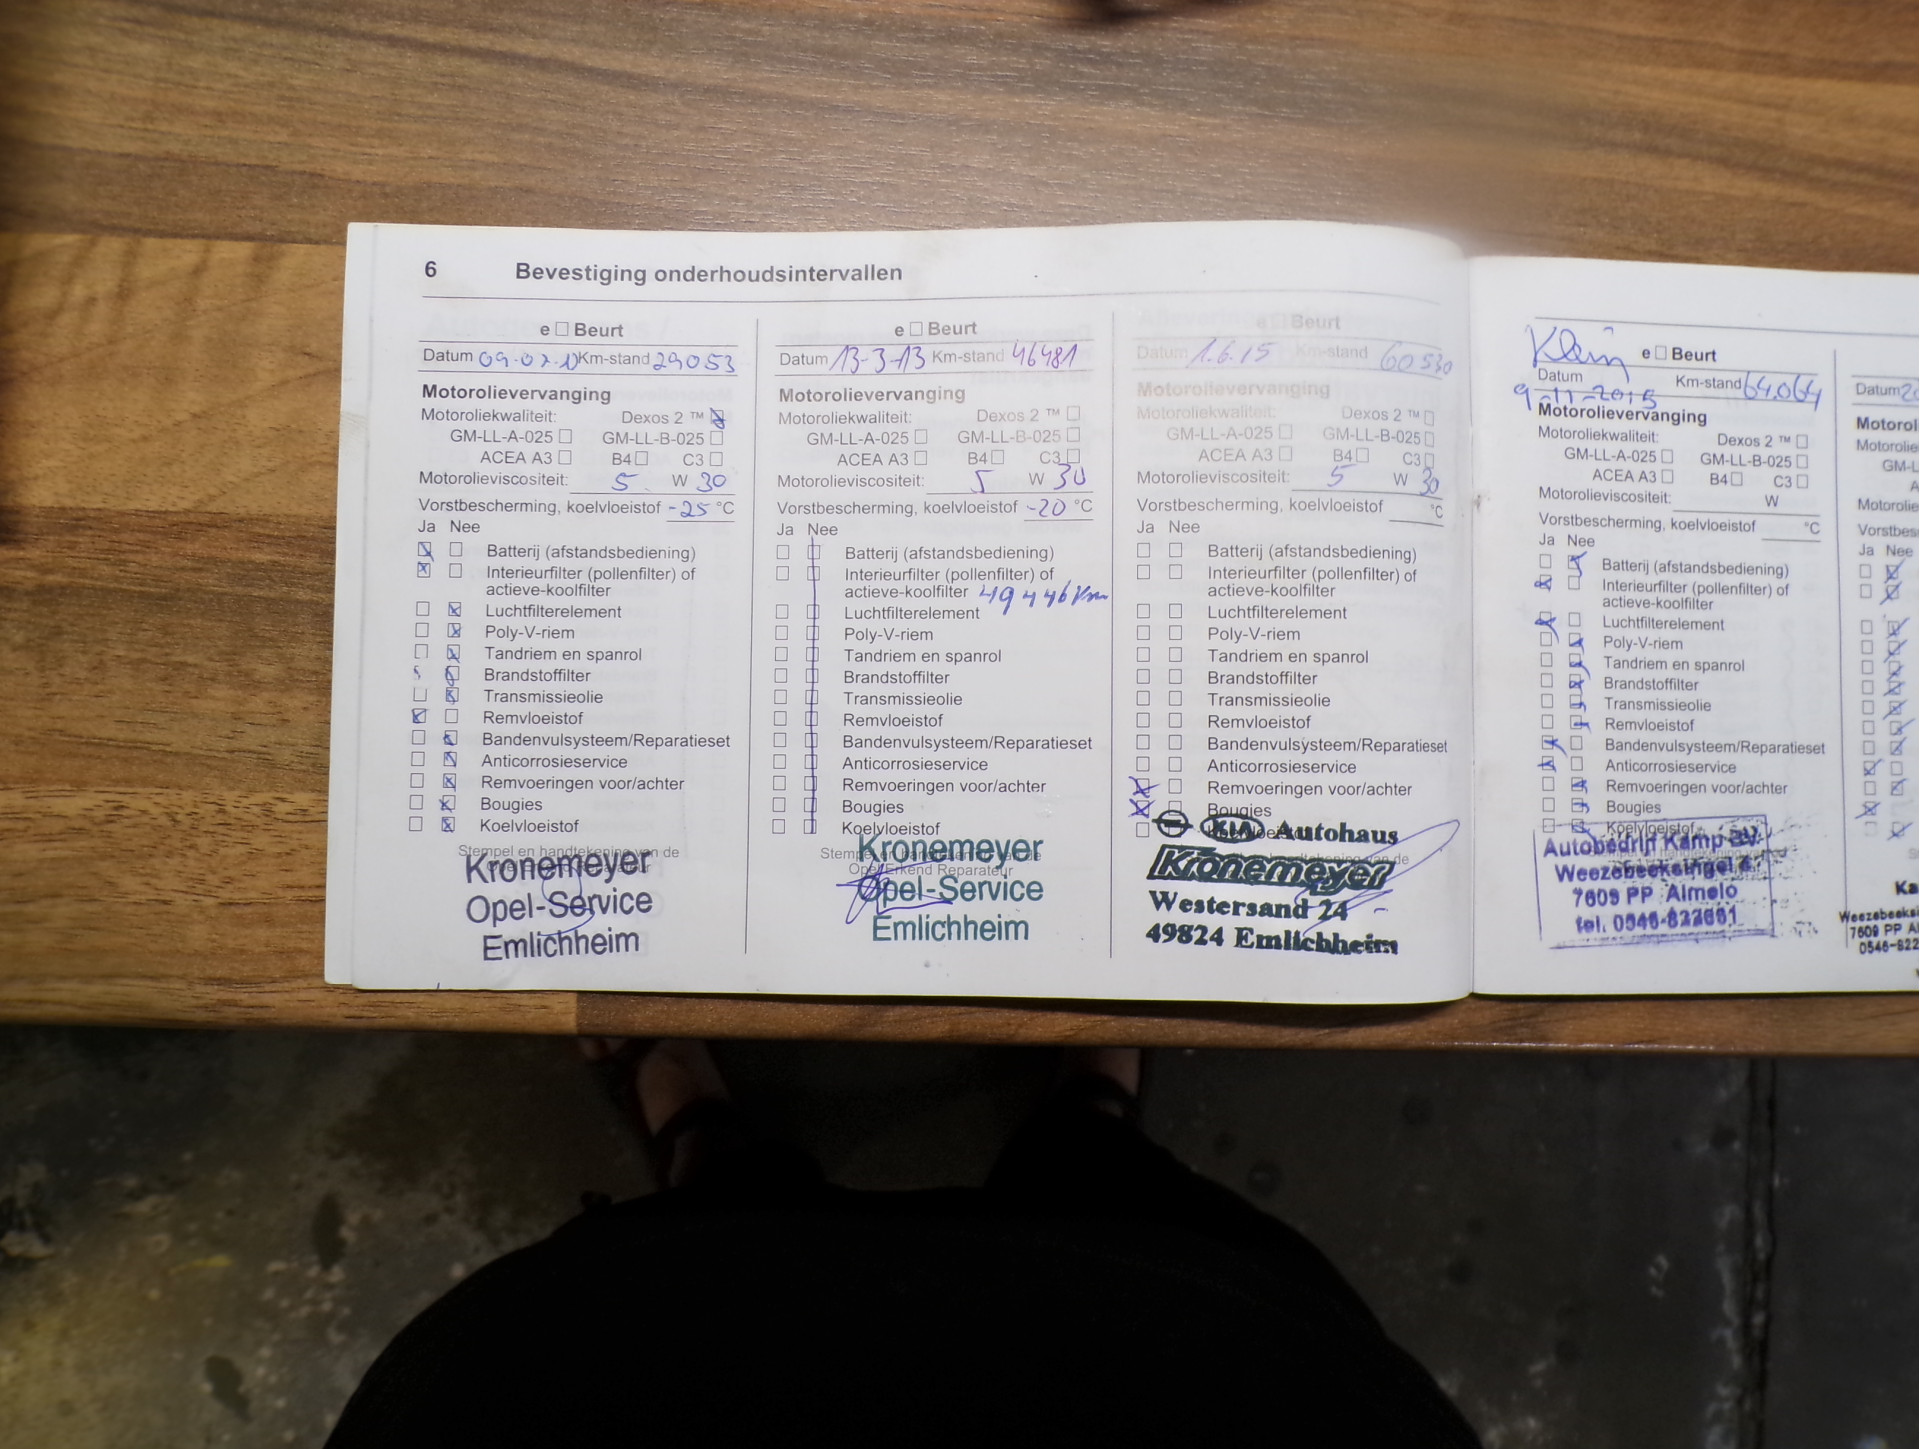 6 Bevestiging onderhoudsintervallen
e Beurt
Datum Km-stand 29053
Motorolievervanging
Motoroliekwaliteit: Dexos 2 ™
GM-LL-A-025 GM-LL-B-025
ACEA A3 B4 C3
Motorolieviscositeit: 5 W 30
Vorstbescherming, koelvloeistof -25 °C
Ja Nee
Batterij (afstandsbediening)
Interieurfilter (pollenfilter) of
actieve-koolfilter
Luchtfilterelement
Poly-V-riem
Tandriem en spanrol
Brandstoffilter
Transmissieolie
Remvloeistof
Bandenvulsysteem/Reparatieset
Anticorrosieservice
Remvoeringen voor/achter
Bougies
Koelvloeistof
Stempel en handtekening van de
Kronemeyer
Opel-Service
Emlichheim
e Beurt
Datum 13-3-13 Km-stand 46481
Motorolievervanging
Motoroliekwaliteit: Dexos 2 ™
GM-LL-A-025 GM-LL-B-025
ACEA A3 B4 C3
Motorolieviscositeit: 5 W 30
Vorstbescherming, koelvloeistof -20 °C
Ja Nee
Batterij (afstandsbediening)
Interieurfilter (pollenfilter) of
actieve-koolfilter 49446 km
Luchtfilterelement
Poly-V-riem
Tandriem en spanrol
Brandstoffilter
Transmissieolie
Remvloeistof
Bandenvulsysteem/Reparatieset
Anticorrosieservice
Remvoeringen voor/achter
Bougies
Koelvloeistof
Stempel en handtekening van de
Opel Erkend Reparateur
Kronemeyer
Opel-Service
Emlichheim
e Beurt
Datum 1.6.15 Km-stand 60530
Motorolievervanging
Motoroliekwaliteit: Dexos 2 ™
GM-LL-A-025 GM-LL-B-025
ACEA A3 B4 C3
Motorolieviscositeit: 5 W 30
Vorstbescherming, koelvloeistof °C
Ja Nee
Batterij (afstandsbediening)
Interieurfilter (pollenfilter) of
actieve-koolfilter
Luchtfilterelement
Poly-V-riem
Tandriem en spanrol
Brandstoffilter
Transmissieolie
Remvloeistof
Bandenvulsysteem/Reparatieset
Anticorrosieservice
Remvoeringen voor/achter
Bougies
KIA Autohaus
Kronemeyer
Westersand 24
49824 Emlichheim
Klein e Beurt
Datum Km-stand 64.064
9-11-2015
Motorolievervanging
Motoroliekwaliteit: Dexos 2 ™
GM-LL-A-025 GM-LL-B-025
ACEA A3 B4 C3
Motorolieviscositeit: W
Vorstbescherming, koelvloeistof °C
Ja Nee
Batterij (afstandsbediening)
Interieurfilter (pollenfilter) of
actieve-koolfilter
Luchtfilterelement
Poly-V-riem
Tandriem en spanrol
Brandstoffilter
Transmissieolie
Remvloeistof
Bandenvulsysteem/Reparatieset
Anticorrosieservice
Remvoeringen voor/achter
Bougies
Koelvloeistof
Autobedrijf Kamp BV
Weezebeeksingel 4
7609 PP Almelo
tel. 0546-822661
Datum 20
Motorol
Motorolie
GM-L
A
Motorolie
Vorstbes
Ja Nee
Ka
Weezebeeks
7609 PP Al
0546-822